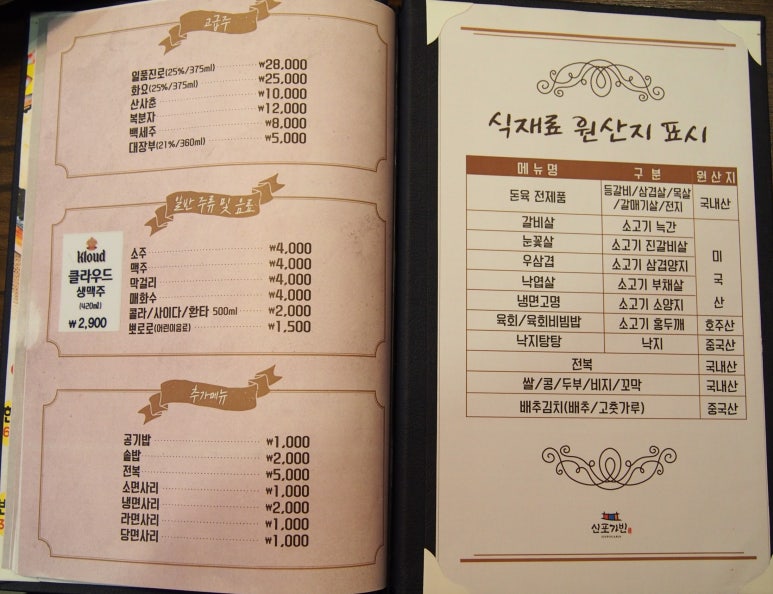 고급주
일품진로(25%/375ml) ₩28,000
화요(25%/375ml) ₩25,000
산사춘 ₩10,000
복분자 ₩12,000
백세주 ₩8,000
대장부(21%/360ml) ₩5,000
일반 주류 및 음료
kloud
클라우드
생맥주
(420ml)
₩2,900
소주 ₩4,000
맥주 ₩4,000
막걸리 ₩4,000
매화수 ₩4,000
콜라/사이다/환타 500ml ₩2,000
뽀로로(어린이음료) ₩1,500
추가메뉴
공기밥 ₩1,000
솥밥 ₩2,000
전복 ₩5,000
소면사리 ₩1,000
냉면사리 ₩2,000
라면사리 ₩1,000
당면사리 ₩1,000
식재료 원산지 표시
메뉴명 구분 원산지
돈육 전제품 등갈비/삼겹살/목살/갈매기살/전지 국내산
갈비살 소고기 늑간 미국산
눈꽃살 소고기 진갈비살
우삼겹 소고기 삼겹양지
낙엽살 소고기 부채살
냉면고명 소고기 소양지
육회/육회비빔밥 소고기 홍두깨 호주산
낙지탕탕 낙지 중국산
전복 국내산
쌀/콩/두부/비지/꼬막 국내산
배추김치(배추/고춧가루) 중국산
신포가반